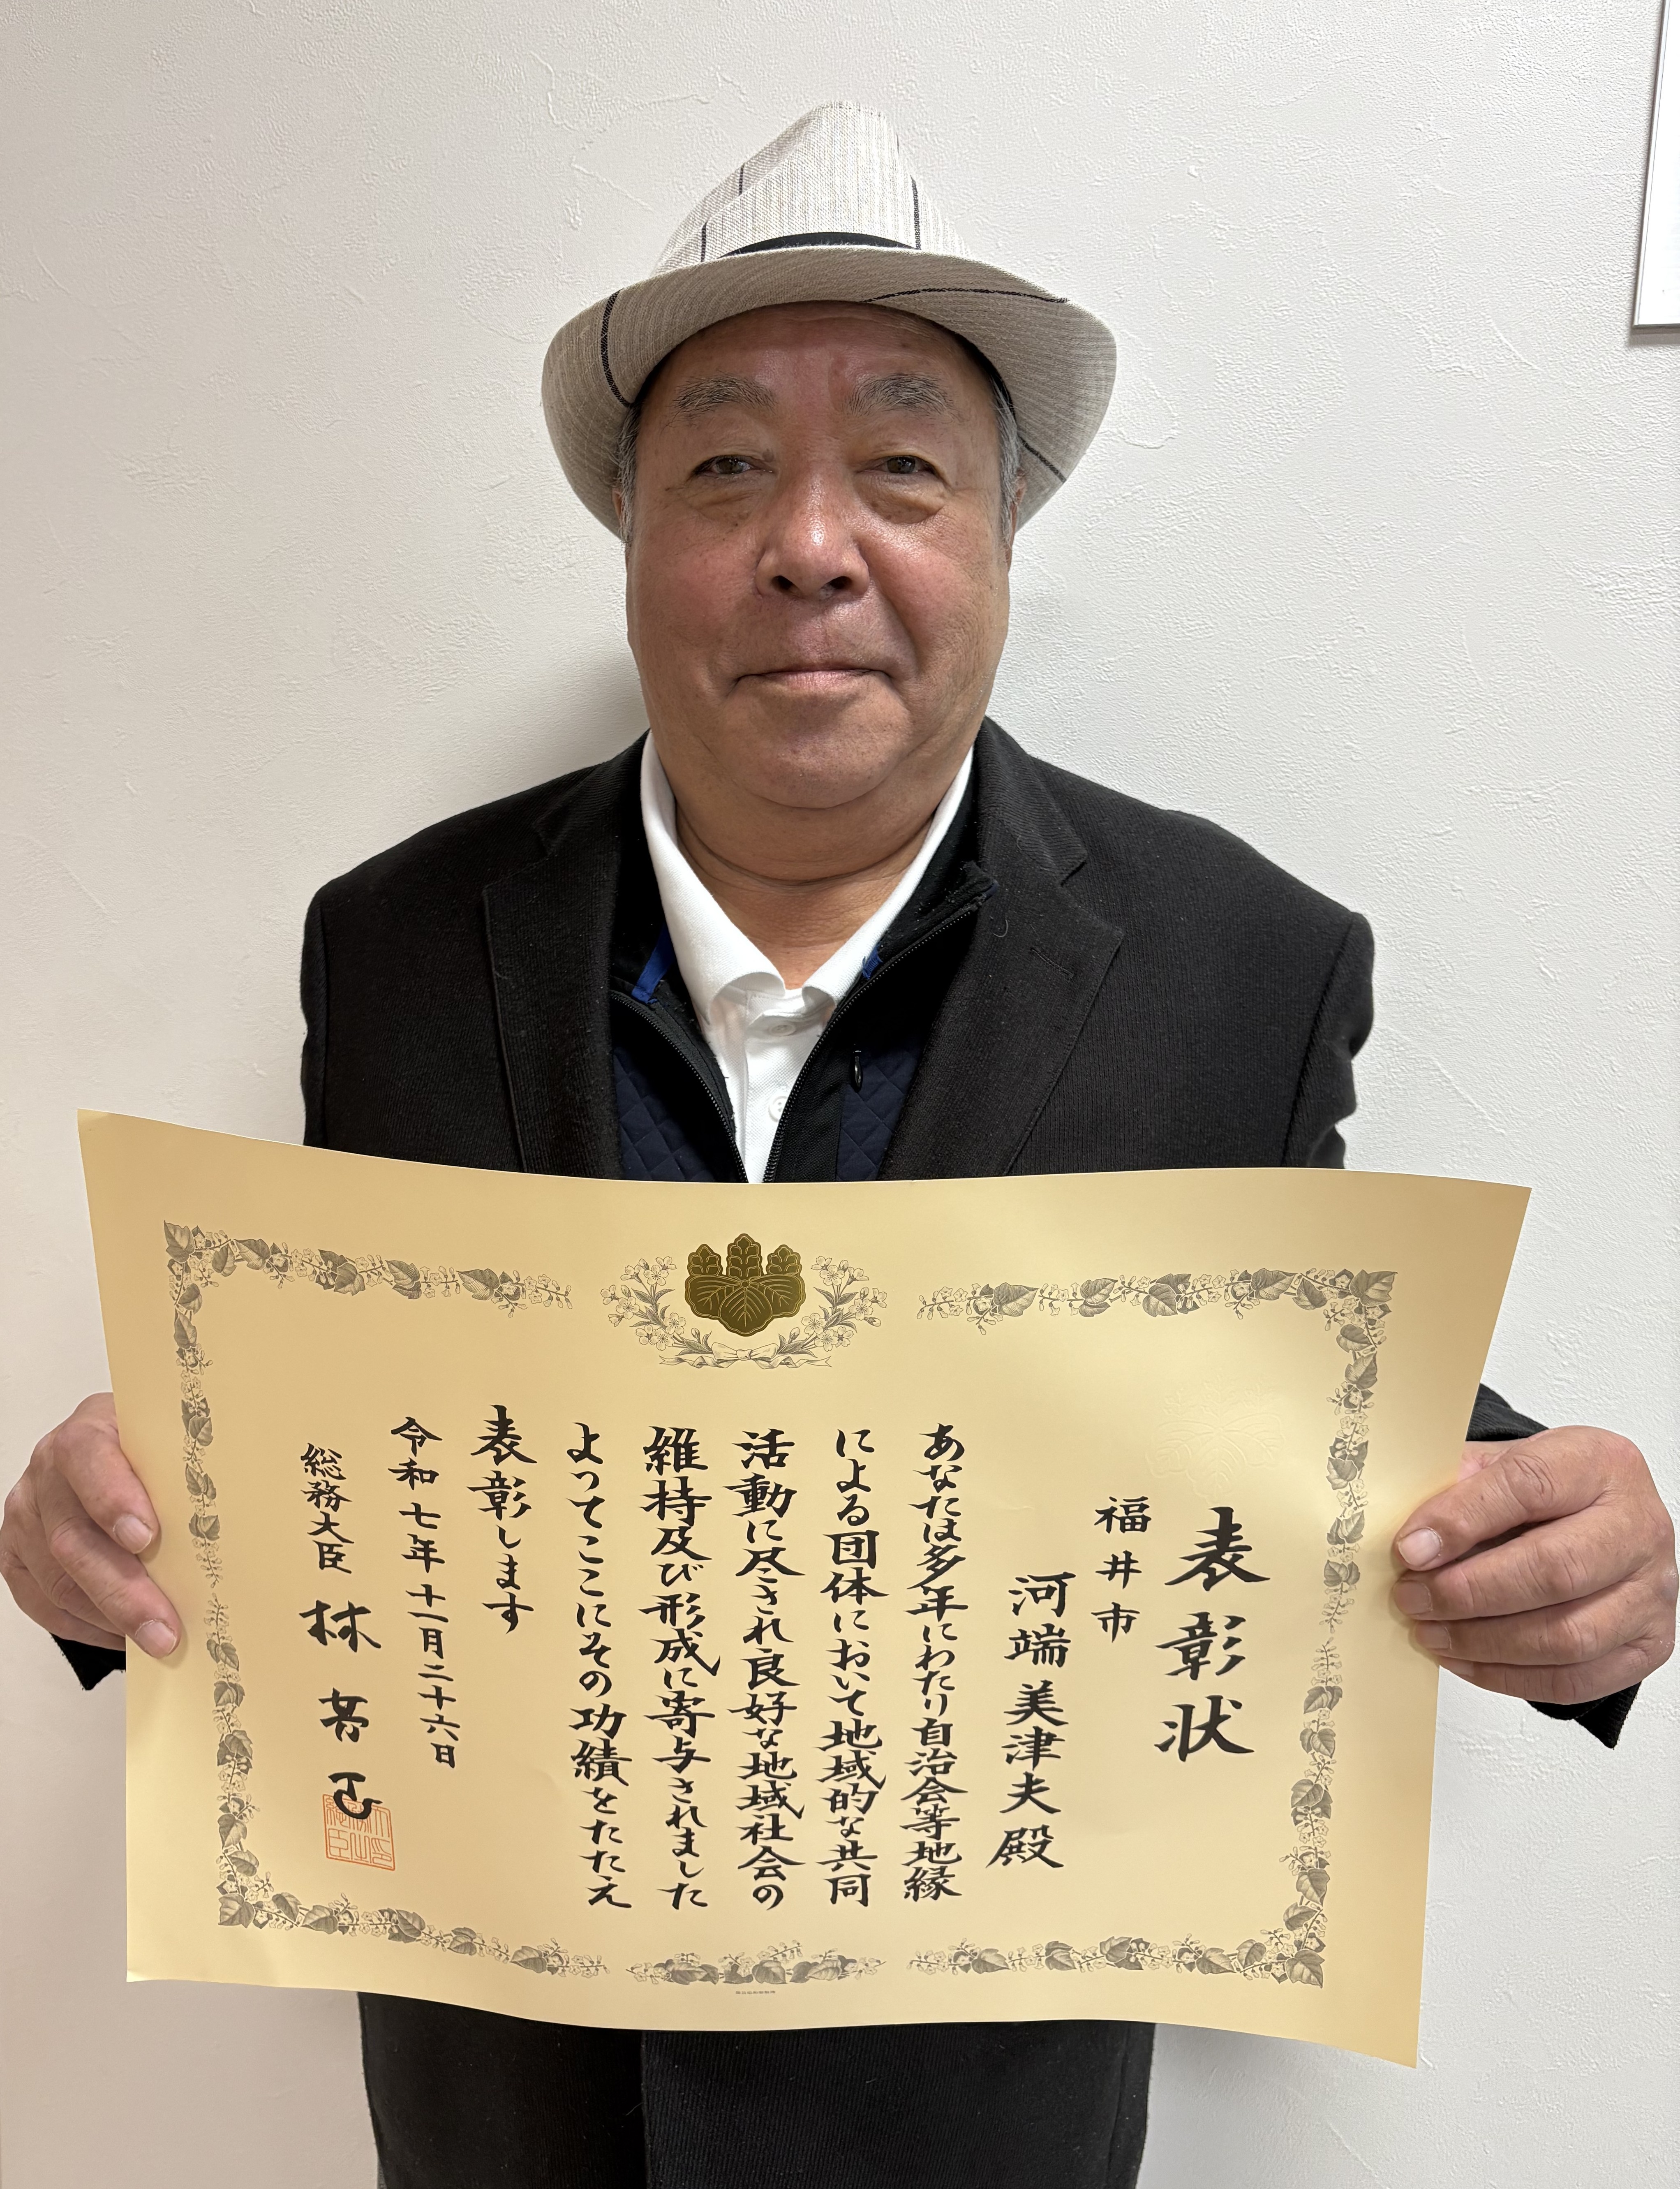 表彰状
福井市
河端美津夫殿
あなたは多年にわたり自治会等地縁
による団体において地域的な共同
活動に尽され良好な地域社会の
維持及び形成に寄与されました
よってここにその功績をたたえ
表彰します
令和七年十一月二十六日
総務大臣 林 芳正